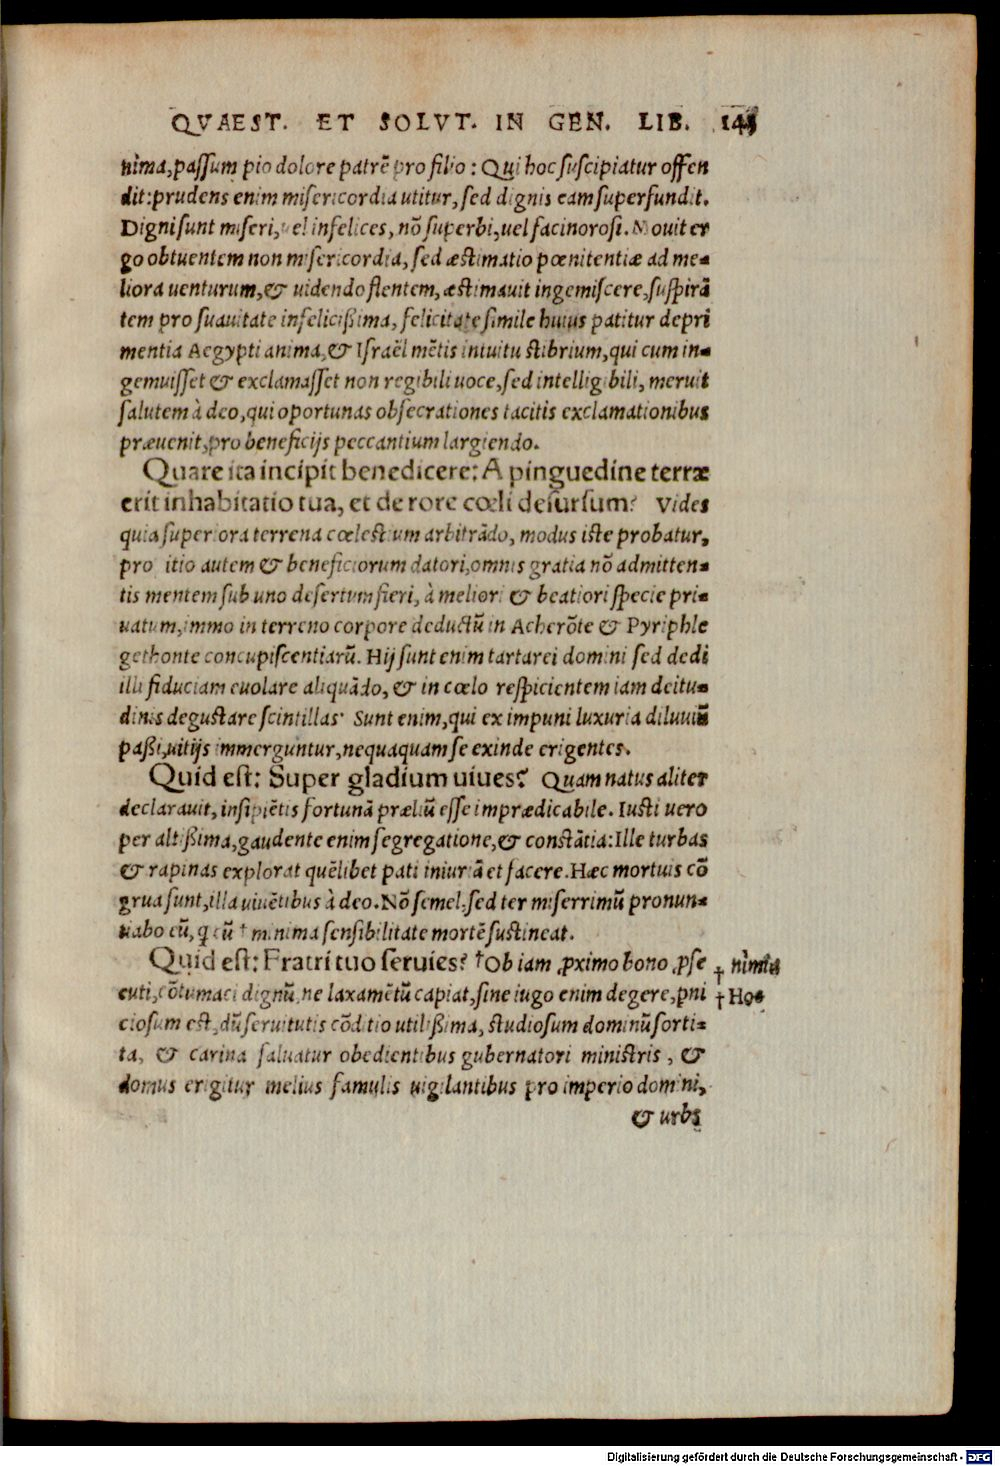 QVAEST. ET SOLVT. IN GEN. LIB. 143
nima, passum pio dolore patrẽ pro filio: Qui hoc suscipiatur offen
dit: prudens enim misericordia utitur, sed dignis eam superfundit.
Digni sunt miseri, uel infelices, nõ superbi, uel facinorosi. Mouit er
go obtuentem non misericordia, sed æstimatio pœnitentiæ ad me-
liora uenturum, & uidendo flentem, æstimauit ingemiscere, suspirã
tem pro suauitate infelicißima, felicitate simile huius patitur depri
mentia Aegypti anima, & Israël mẽtis intuitu stibrium, qui cum in-
gemuisset & exclamasset non regibili uoce, sed intelligibili, meruit
salutem à deo, qui oportunas obsecrationes tacitis exclamationibus
præuenit, pro beneficijs peccantium largiendo.
Quare ita incipit benedicere: A pinguedine terræ
erit inhabitatio tua, et de rore cœli desursum? Vides
quia superiora terrena cœlestium arbitrãdo, modus iste probatur,
pro itio autem & beneficiorum datori, omnis gratia nõ admitten-
tis mentem sub uno desertum fieri, à meliori & beatiori specie pri-
uatum, immo in terreno corpore deductũ in Acherõte & Pyriphle
gethonte concupiscentiarũ. Hij sunt enim tartarei domini sed dedi
illi fiduciam euolare aliquãdo, & in cœlo respicientem iam deitu-
dinis degustare scintillas. Sunt enim, qui ex impuni luxuria diluuiũ
paßi, uitijs immerguntur, nequaquam se exinde erigentes.
Quid est: Super gladium uiues? Quam natus aliter
declarauit, insipiẽtis fortunã præliũ esse impraedicabile. Iusti uero
per altißima, gaudente enim segregatione, & constãtia: Ille turbas
& rapinas explorat quẽlibet pati iniuriã et facere. Hæc mortuis cõ
grua sunt, illa uiuẽtibus à deo. Nõ semel, sed ter miserrimũ pronun-
tiabo eũ, q cũ † minima sensibilitate mortẽ sustineat.
Quid est: Fratri tuo seruies? †Ob iam ꝓximo bono ꝓse † nimia
cuti, cõtumaci dignũ, ne laxamẽtũ capiat, sine iugo enim degere, ꝑni † Hoc
ciosum est, dũ seruitutis cõditio utilißima, studiosum dominũ sorti-
ta, & carina saluatur obedientibus gubernatori ministris, &
domus erigitur melius famulis uigilantibus pro imperio domini,
& urbs
Digitalisierung gefördert durch die Deutsche Forschungsgemeinschaft - DFG